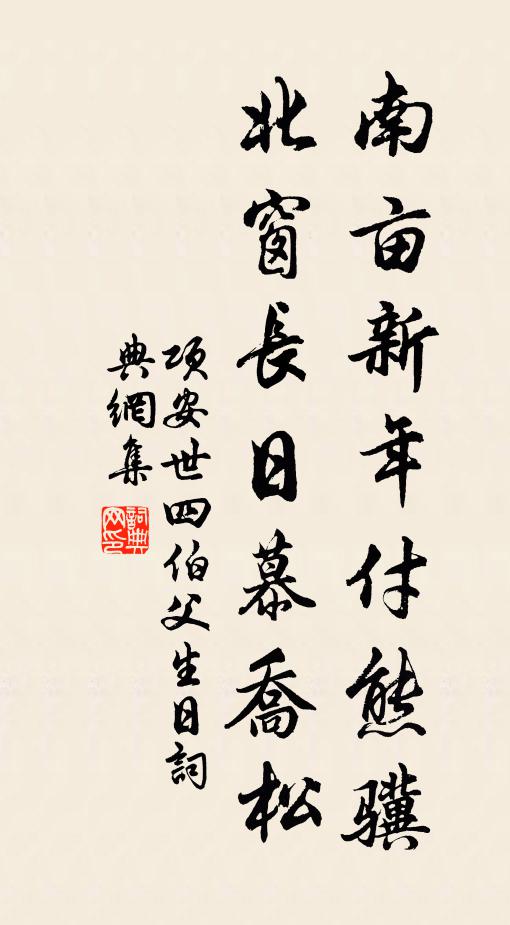 南亩新年付熊骥
北窗長日慕喬松
項安世四伯父生日詞
典網集
詞典网印